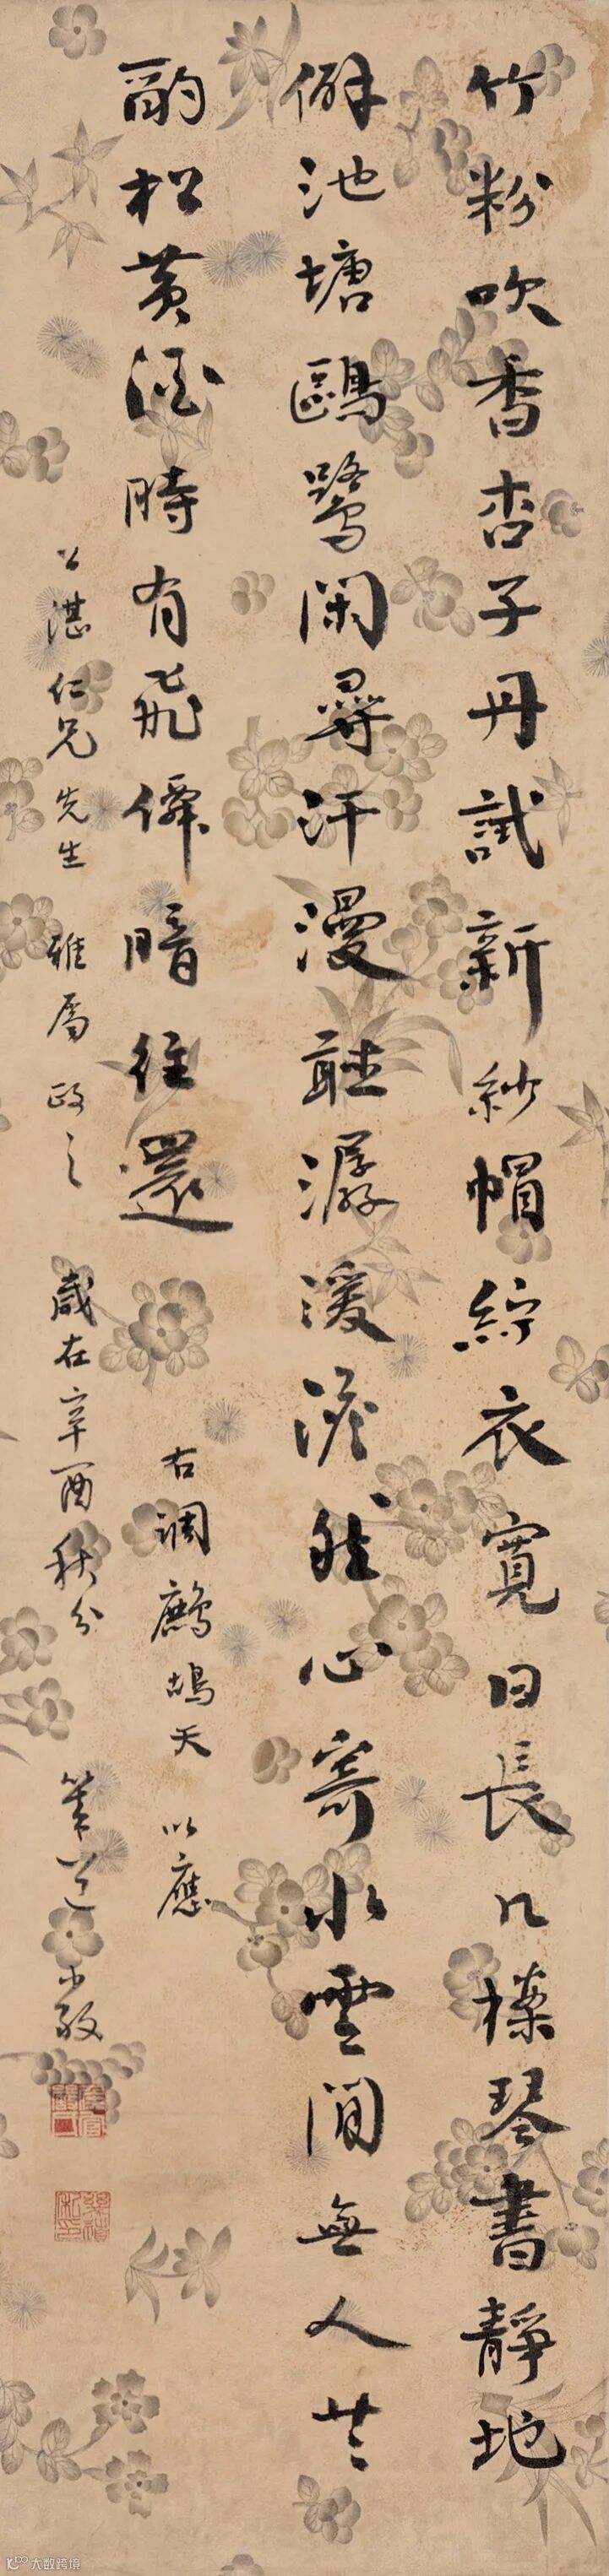 竹粉吹香杏子丹試新紗帽紵衣寬日長几榻琴書靜地
僻池塘鷗鷺閑尋汗漫聽潺湲澹然心寄水雲間無人共
酌松黃酒時有飛僊暗往還
右調鷓鴣天 以應
公湛仁兄先生 雅屬政之 歲在辛酉秋分
大数跨境